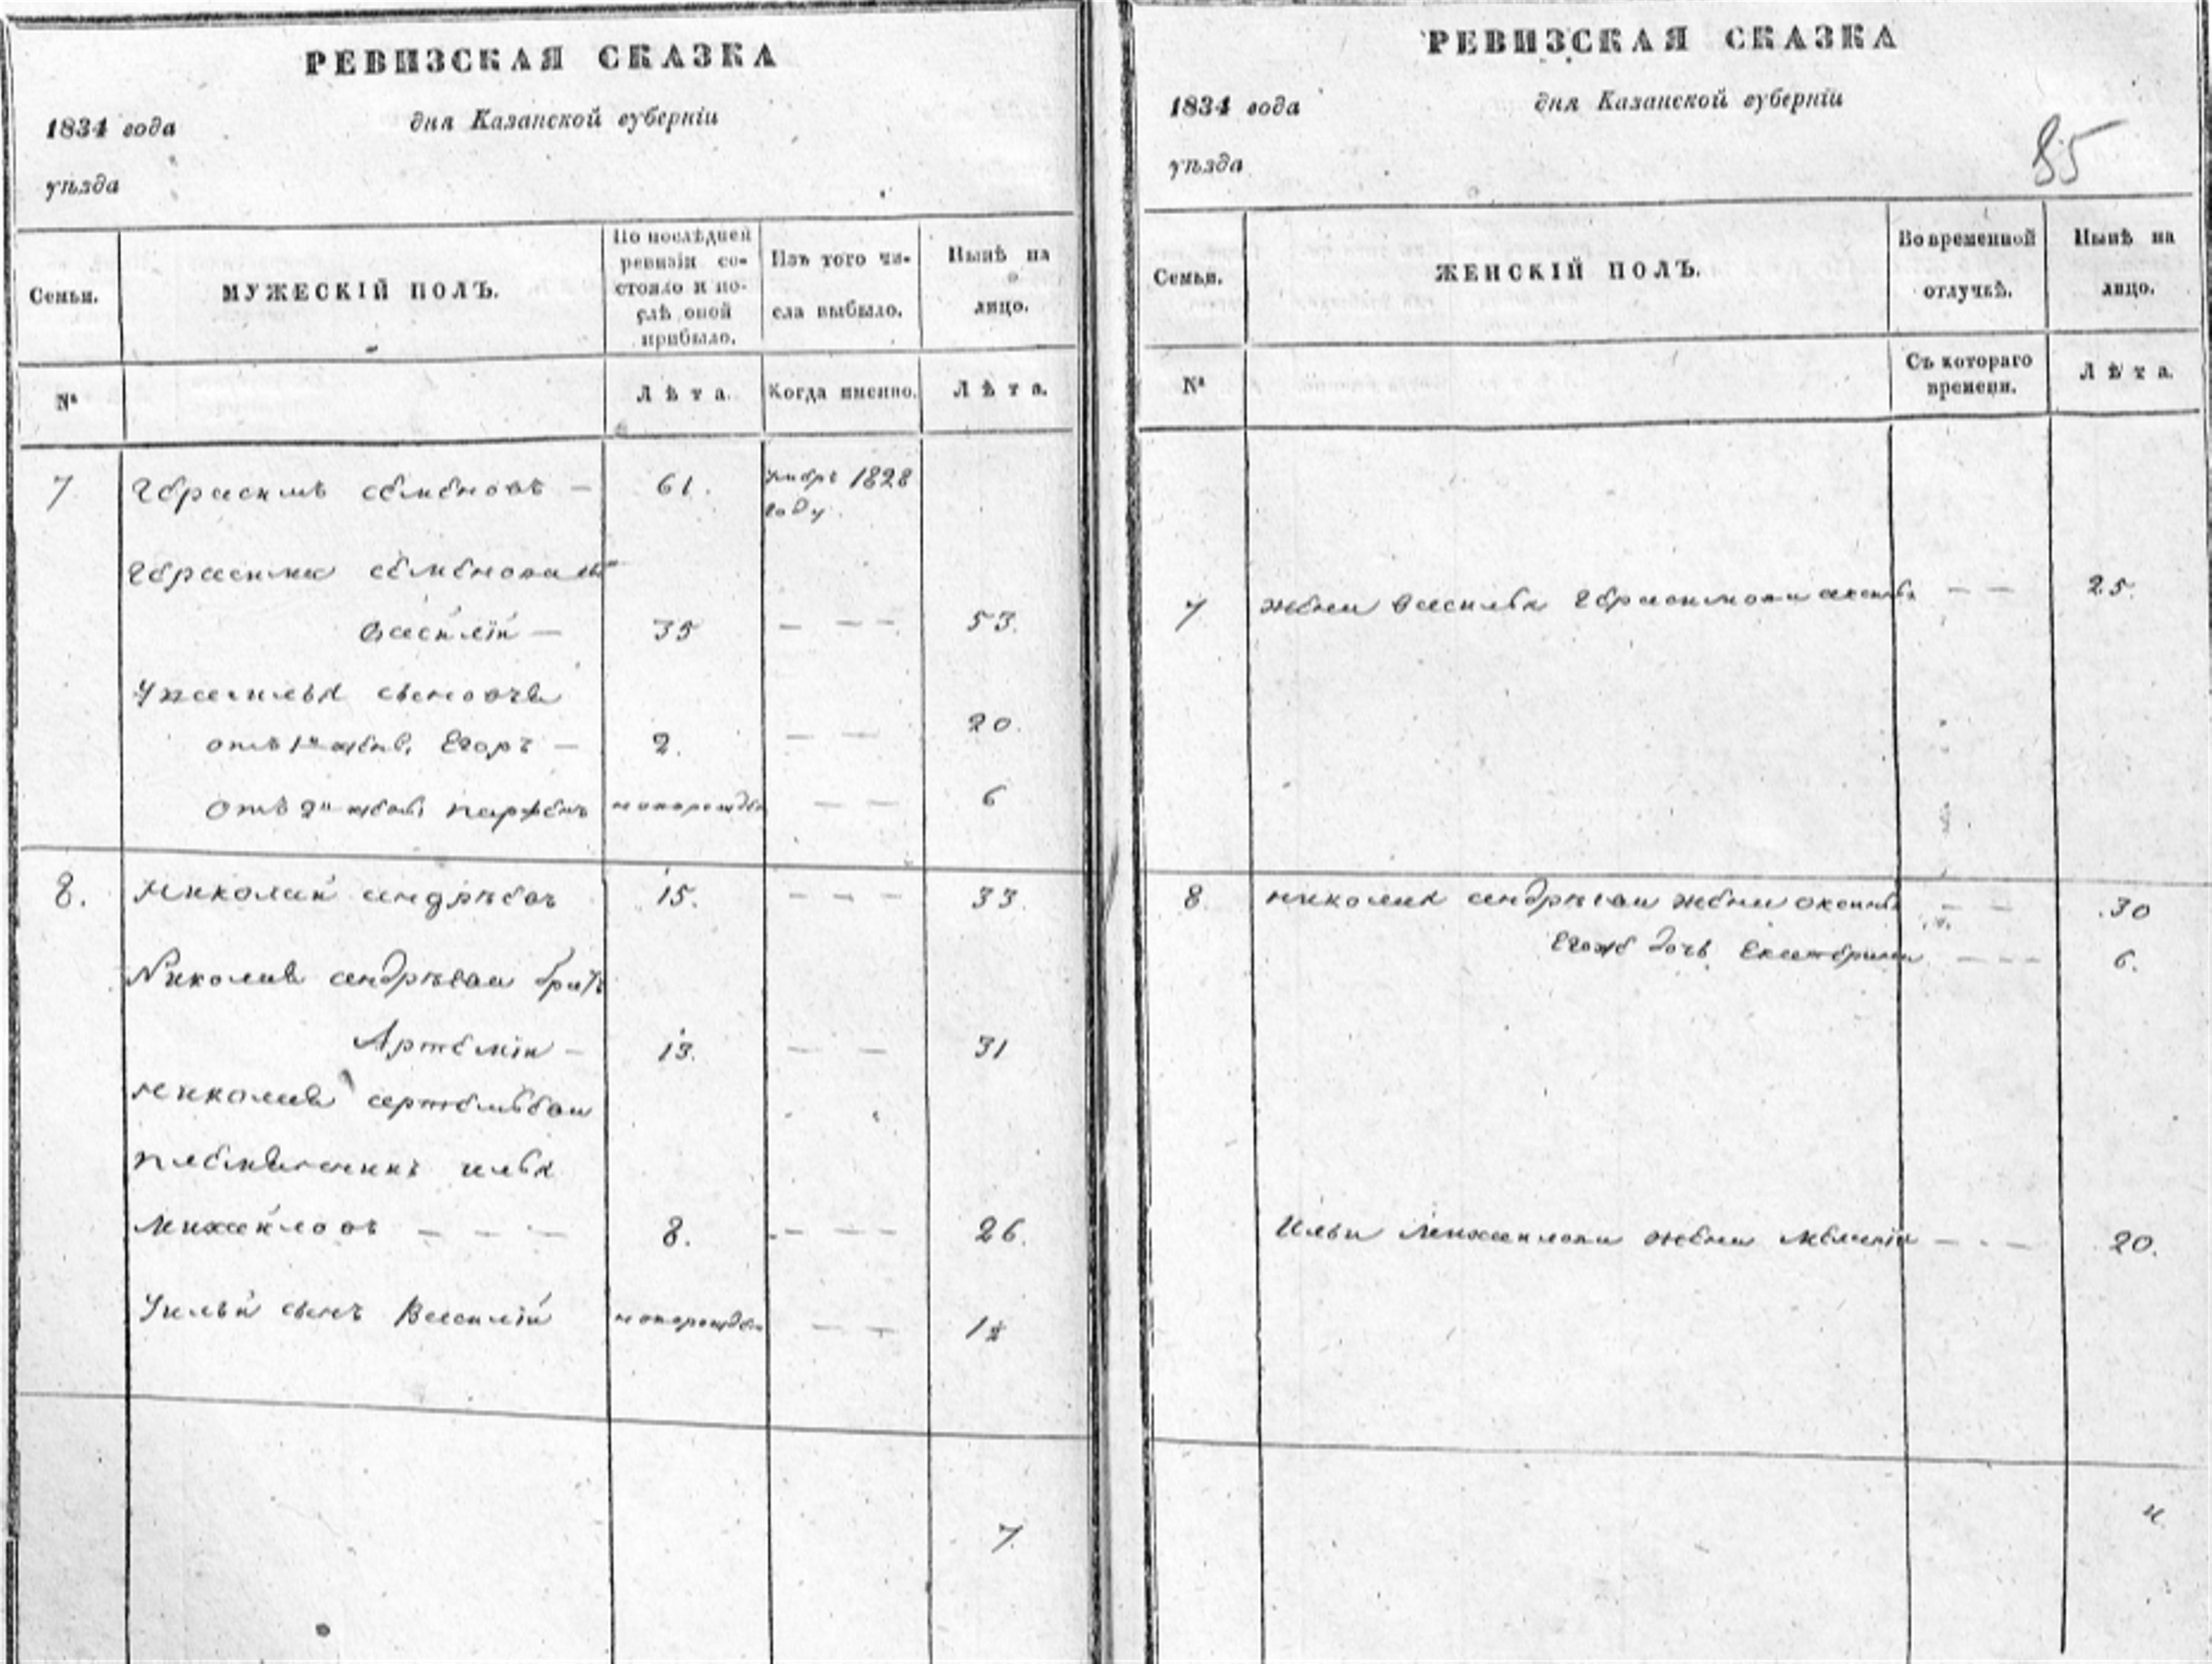 РЕВИЗСКАЯ СКАЗКА
1834 года дня Казанской губерніи
уѣзда
Семьи.
МУЖЕСКІЙ ПОЛЪ.
По послѣдней ревизіи состояло и послѣ оной прибыло.
Изъ того числа выбыло.
Нынѣ на лицо.
№
Лѣта.
Когда именно.
Лѣта.
7 Герасимъ Семеновъ — 61. умбръ 1828
году
Герасима Семенова
Василій — 35 — — — 53.
У Василья сыновья
отъ 1й жены Егоръ — 2. — — 20.
отъ 2й жены Парфенъ новорожден — — 6
8. Николай Андрѣевъ 15. — — — 33.
Николая Андрѣева братъ
Артемій — 13. — — 31
Николая Артемьева
племянникъ Илья
Михайловъ — — — 8. — — — 26.
У Ильи сынъ Василій новорожден — — 1½
7.
РЕВИЗСКАЯ СКАЗКА
1834 года дня Казанской губерніи
уѣзда
85
Семьи.
ЖЕНСКІЙ ПОЛЪ.
Во временной отлучкѣ.
Нынѣ на лицо.
№
Съ котораго времени.
Лѣта.
7 жена Василья Герасимова — — 25.
8 Николая Андрѣева жена Оксинья — — 30
Егожъ дочь Екатерина — — — 6.
Ильи Михайлова жена — — — 20.
4.